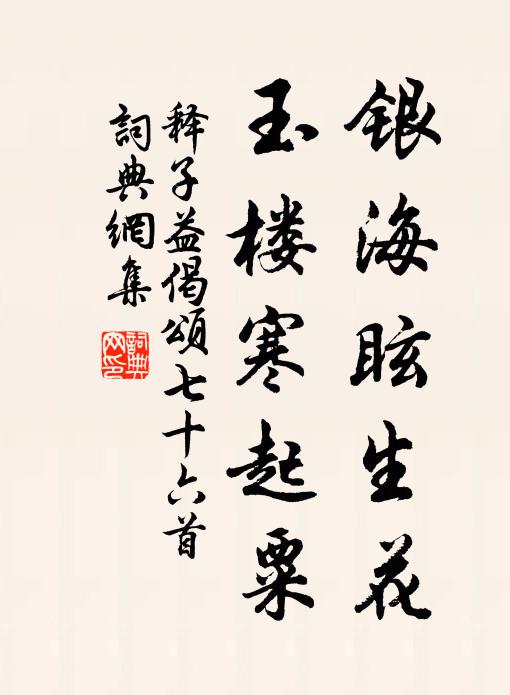 银海眩生花
玉楼寒起粟
释子益偈颂七十六首
詞典網集
詞典
网印